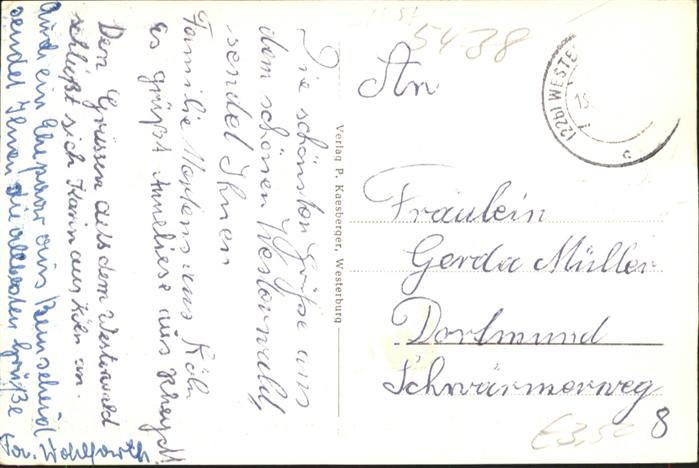 Die schönsten Grüße aus
dem schönen Westerwald,
sendet Ihnen
Familie Mertens aus Köln
es grüßt Anneliese aus Rheydt
Den Grüssen aus dem Westerwald
schließt sich Karin aus Köln an.
Auch ein Ehepaar aus Remscheid
sendet Ihnen die allerbesten Grüße
Fam. Wohlfarth.
Verlag P. Kaesberger, Westerburg
5438
(22b) WESTE
An
Fräulein
Gerda Müller
Dortmund
Schwärmerweg
8
€3,50